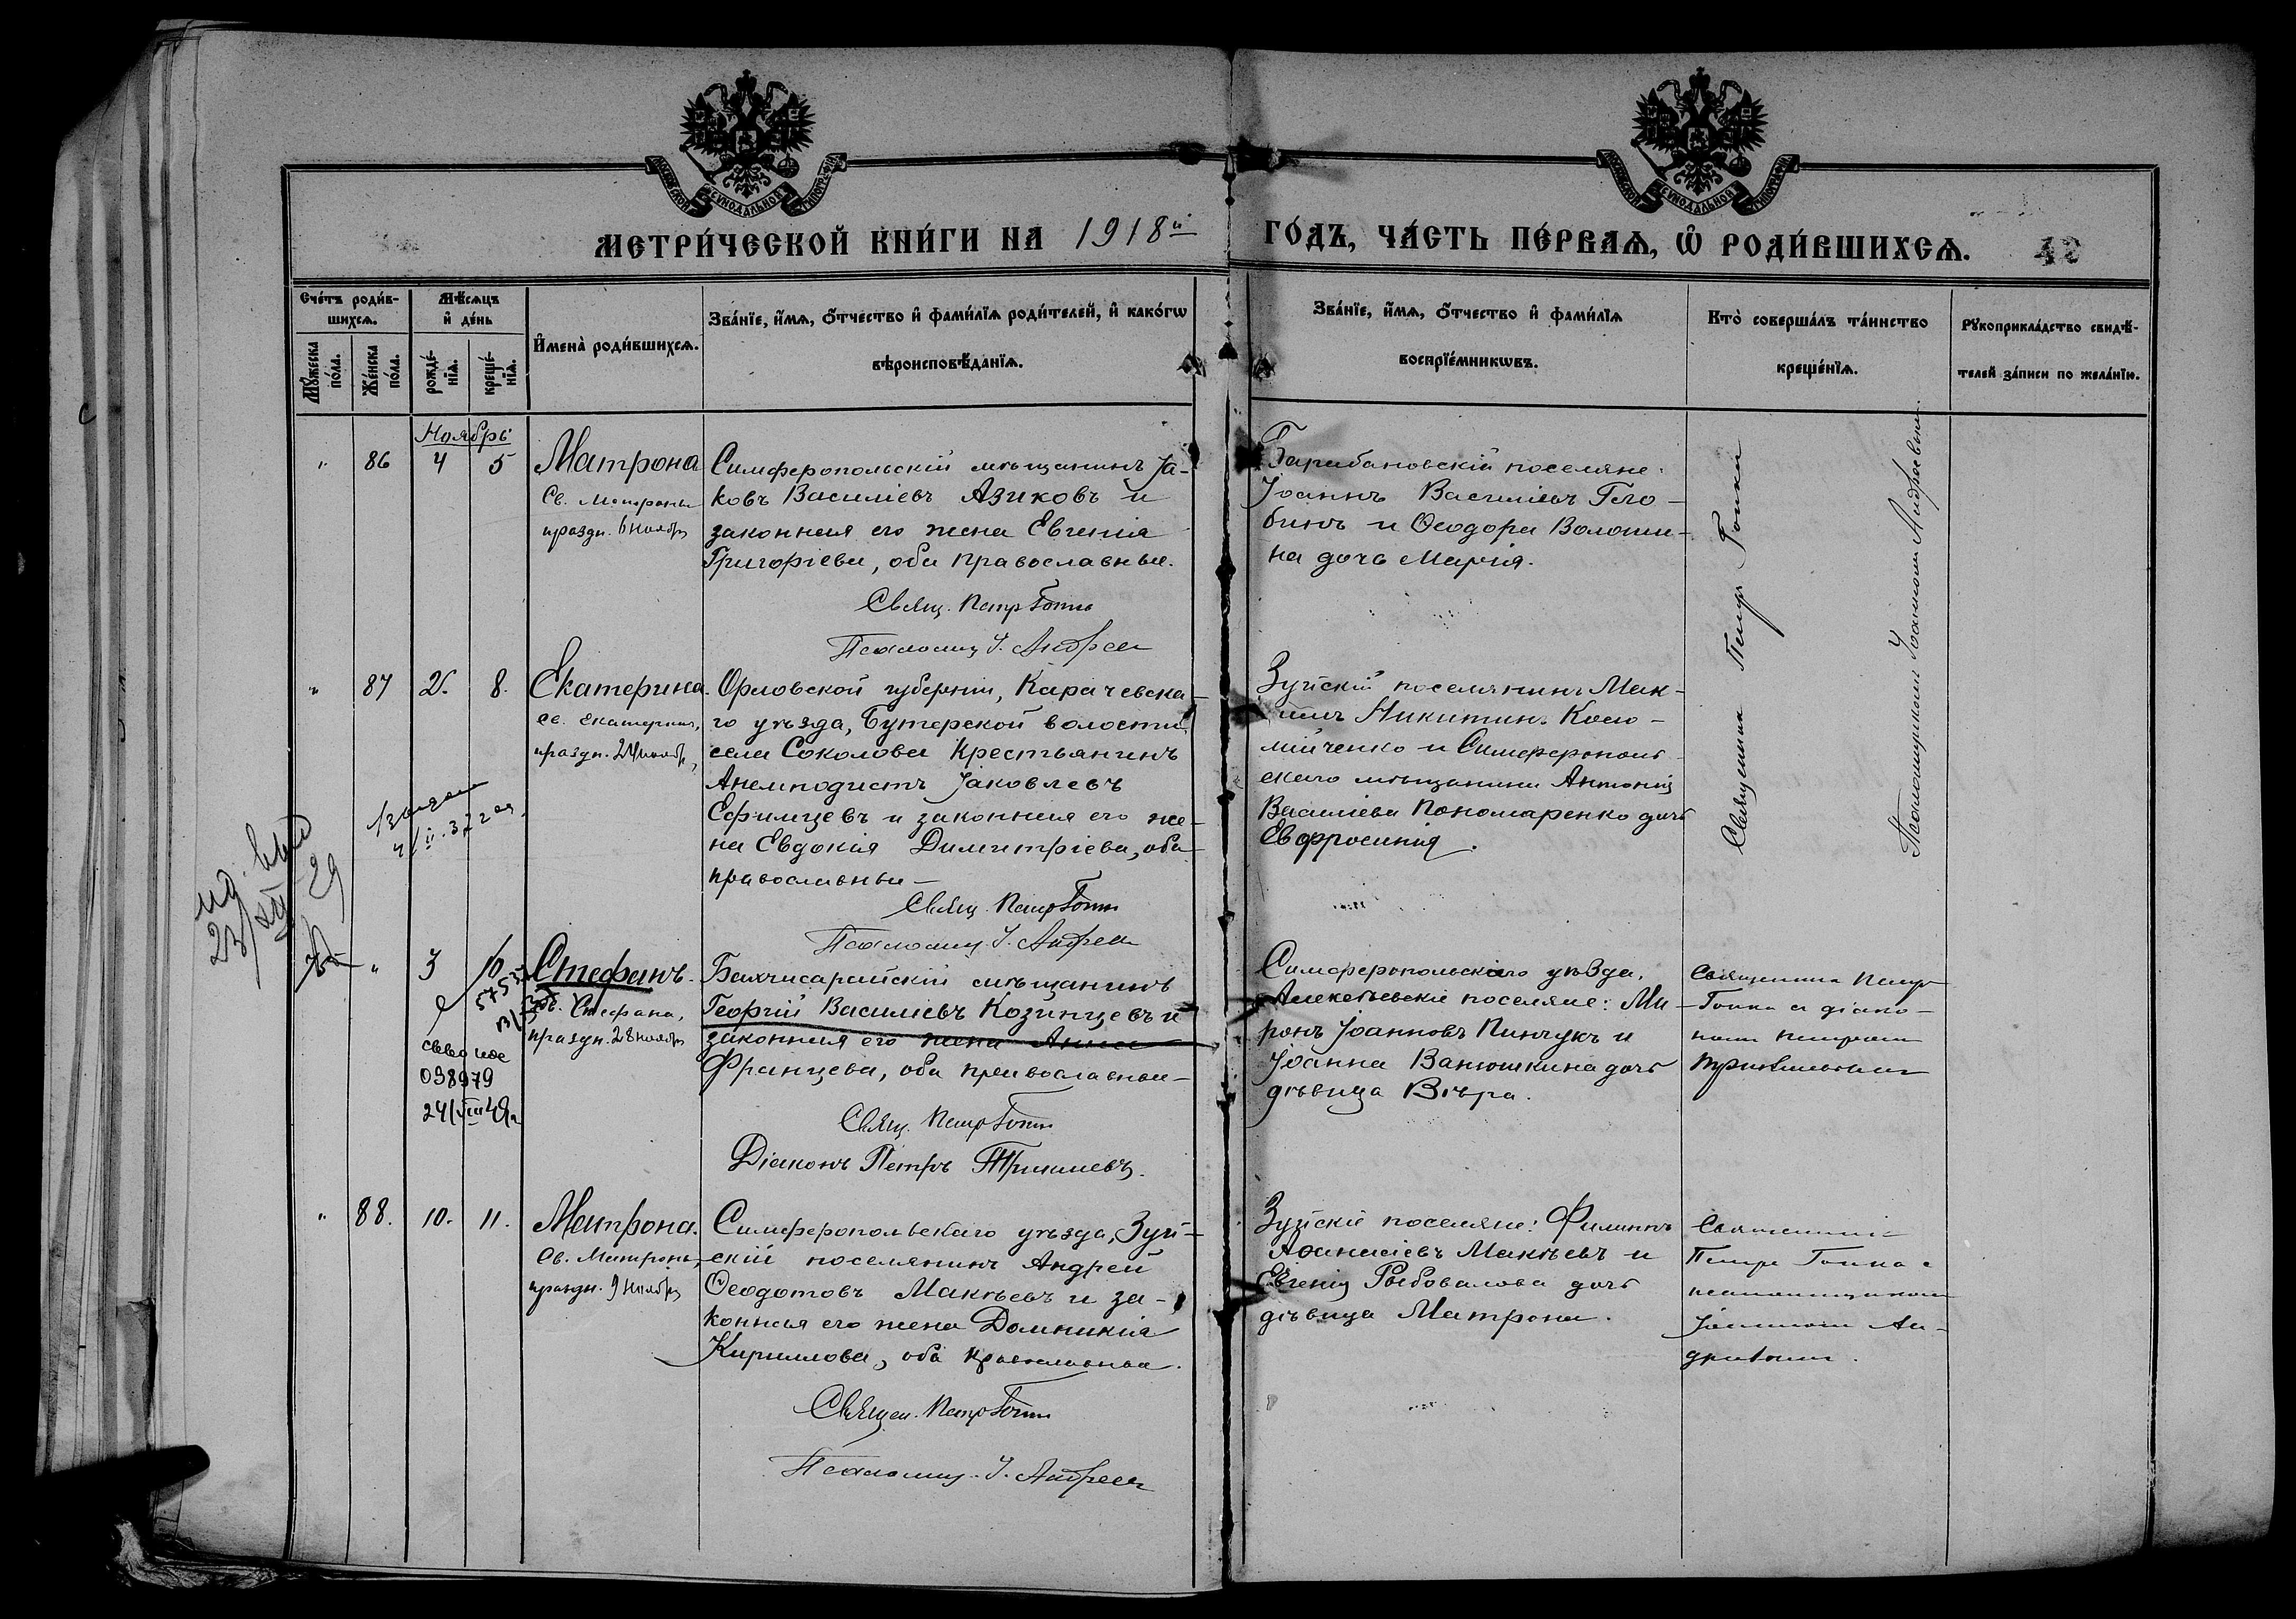 МЕТРИ́ЧЕСКОЙ КНИ́ГИ НА 1918й ГО́ДЪ, ЧА́СТЬ ПЕ́РВАѦ, Ѡ҆ РОДИ́ВШИХСѦ.
Сче́тъ роди́в-
шихсѧ.
Мѣ́сѧцъ
и҆ де́нь
Мꙋ́жеска
по́ла.
Же́нска
по́ла.
рожде́-
нїѧ.
креще́-
нїѧ.
И҆мена̀ роди́вшихсѧ.
Зва́нїе, и҆́мѧ, ѻ҆́тчество и҆ фами́лїѧ роди́телей, и҆ како́гѡ
вѣроисповѣ́данїѧ.
Зва́нїе, и҆́мѧ, ѻ҆́тчество и҆ фами́лїѧ
воспрїе́мникѡвъ.
Кто̀ соверша́лъ та́инство
креще́нїѧ.
Рꙋкоприкла́дство свидѣ́-
телей за́писи по жела́нїю.
Ноябрь
" 86 4 5 Матрона
Св. Матроны
праздн. 6 ноябр
Симферопольскій мѣщанинъ Іа-
ковъ Василіевъ Азиковъ и
законная его жена Евгенія
Григоріева, оба православные.
Свящ. Петр Гопка
Псаломщ. І. Андреев
поселяне:
Іоаннъ Василіевъ
и Ѳеодора Волоши-
на дочь Марія.
Священник Петр Гопка
Псаломщиком Іоанном Андреевым.
" 87 2. 8. Екатерина.
Св. Екатерины,
праздн. 24 ноябр,
Орловской губерніи, Карачевска-
го уѣзда, Бутерской волости
села Соколова крестьянинъ
Анемподистъ Іаковлевъ
Ефимцевъ и законная его же-
на Евдокія Димитріева, оба
православны
Свящ. Петр Гопка
Псаломщ. І. Андреев
Зуйскій поселянинъ Мак-
симъ Никитин. Коло-
мійченко и Симферополь-
скаго мѣщанина Антонія
Василіева Пономаренко дочь
Евфросинія.
" 3 10 Стефанъ.
Св. Стефана,
праздн. 28 ноябр
038979
Бахчисарайскій мѣщанинъ
Георгій Василіевъ Козинцевъ и
законная его жена Анна
Францева, оба православные
Свящ. Петр Гопка
Діаконъ Петръ
Симферопольскаго уѣзда,
Алексѣевскіе поселяне: Ми-
ронъ Іоанновъ Пинчукъ и
Іоанна Ванюшкина дочь
дѣвица Вѣра.
Священник Петр
Гопка с діако-
ном Петром
" 88. 10. 11. Матрона.
Св. Матроны,
праздн. 9 ноябр
Симферопольскаго уѣзда, Зуй-
скій поселянинъ Андрей
Ѳеодотовъ Макѣевъ и за-
конная его жена Домникія
Кириллова, оба православные.
Священ. Петр Гопка
Псаломщ. І. Андреев
Зуйскіе поселяне: Филиппъ
Аѳанасіевъ Макѣевъ и
Евгенія Рыбовалова дочь
дѣвица Матрона.
Священник
Петр Гопка с
псаломщиком
Іоанном Ан-
дреевым.